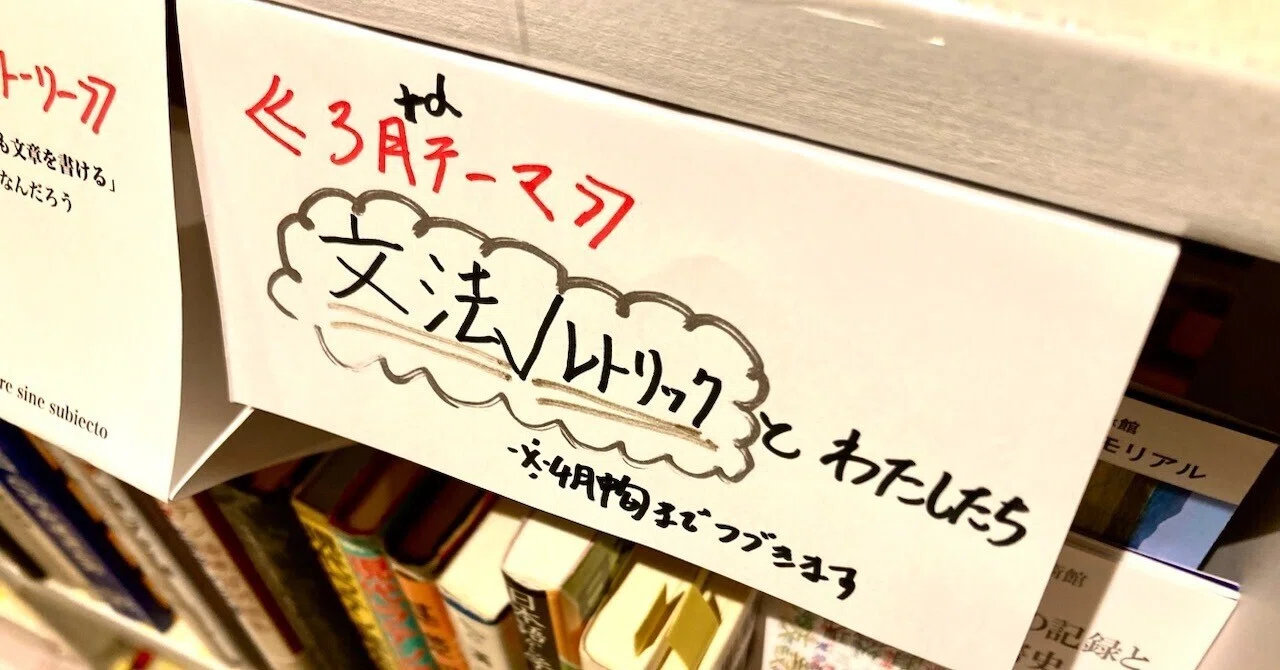 トーリー》
も文章を書ける」
なんだろう
re sine subiecto
《3月+αテーマ》
文法/レトリック
とわたしたち
※4月中旬までつづきます
日本語
館
モリアル
術館
の記録と
歴史